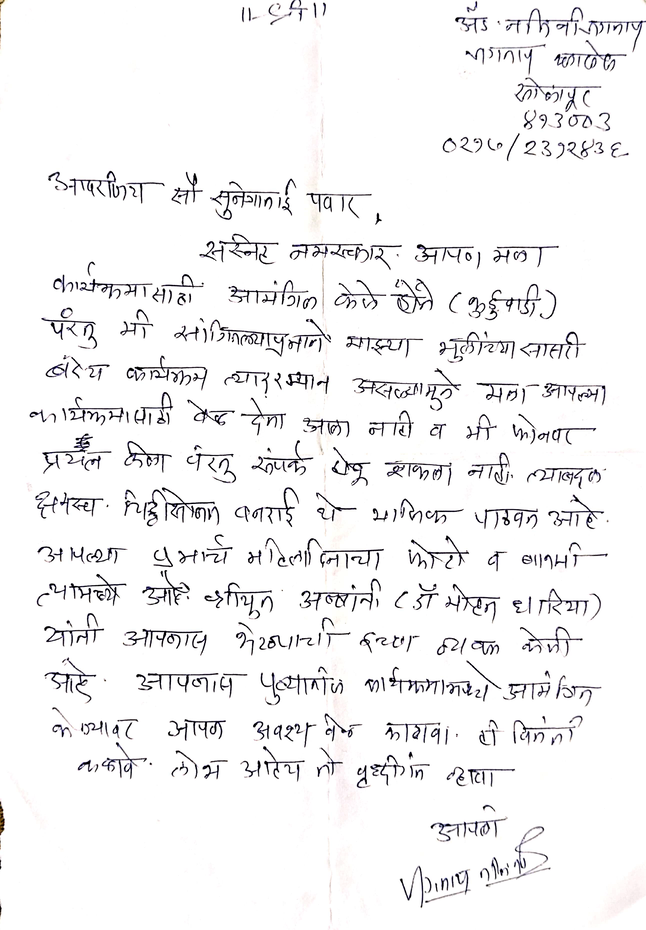 ॥ श्री ॥
अ‍ॅड. नलिनी जगताप
जगताप
सोलापूर
४१३००३
०२१७/२३१२४३६
आदरणिय सौ सुनेत्राताई पवार,
सस्नेह नमस्कार. आपण मला
कार्यक्रमासाठी आमंत्रित केले होते (कुर्डुवाडी)
परंतु मी सांगितल्याप्रमाणे माझ्या मुलींच्यासाठी
बरेच कार्यक्रम त्यादरम्यान असल्यामुळे मला आपल्या
कार्यक्रमासाठी वेळ देता आला नाही व मी फोनवर
प्रयत्न केला परंतु संपर्क होवू शकला नाही. त्याबद्दल
क्षमस्व. चिठ्ठीसोबत वनराई चे मासिक पाठवत आहे.
आपल्या ८ मार्च महिलादिनाचा फोटो व बातमी
त्यामध्ये आहे. श्रीयुत अण्णांनी (डॉ मोहन धारिया)
यांनी आपणास भेटण्याची इच्छा व्यक्त केली
आहे. आपणास पुण्यातील कार्यक्रमामध्ये आमंत्रित
केल्यावर आपण अवश्य वेळ काढावा. ही विनंती
कळावे. लोभ आहेच तो वृध्दींगत व्हावा
आपली
जगताप नलिनी